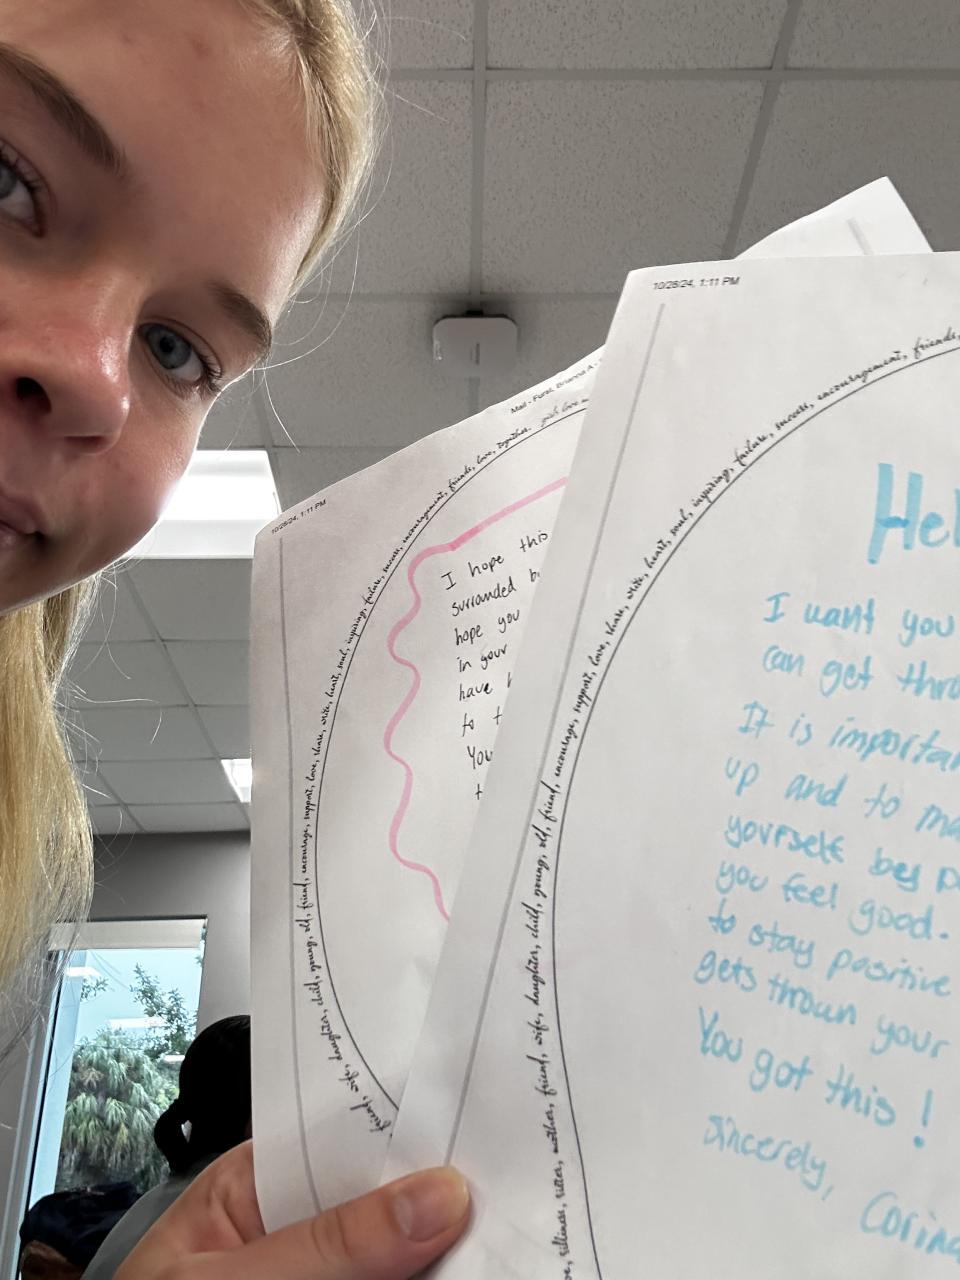 10/28/24, 1:11 PM
Mail - Furst, Brianna A -
friend, wife, daughter, child, young, old, friend, encourage, support, love, share, write, heart, soul, inspiring, failure, success, encouragement, friends, love, together.
I hope this
surronded b
hope you
in your
have h
to t
You
t
10/28/24, 1:11 PM
silliness, sister, mother, friend, wife, daughter, child, young, old, friend, encourage, support, love, share, write, heart, soul, inspiring, failure, success, encouragement, friends,
Hel
I want you
can get thro
It is importan
up and to ma
yourself bes p
you feel good.
to stay positive
gets thrown your
You got this!
Sincerely,
Corinn